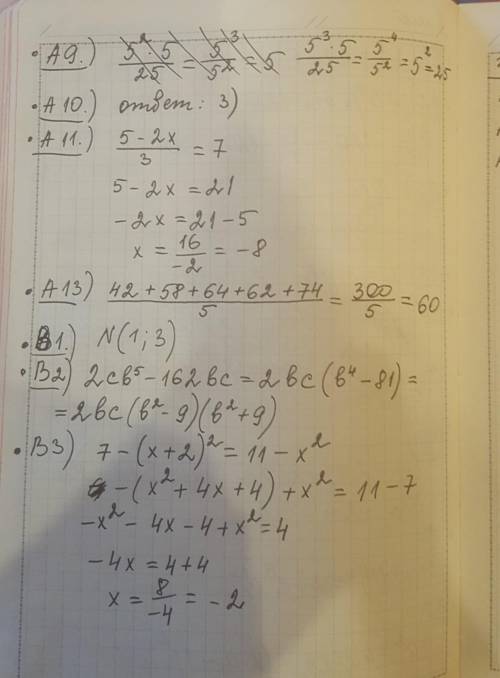 А9.) 5²·5/25 = 5³/5² = 5 5³·5/25 = 5⁴/5² = 5² = 25
А10.) ответ: 3)
А11.) (5-2x)/3 = 7
5-2x = 21
-2x = 21-5
x = 16/-2 = -8
А13) (42+58+64+62+74)/5 = 300/5 = 60
В1.) N(1; 3)
В2) 2cb⁵-162bc = 2bc(b⁴-81) =
= 2bc(b²-9)(b²+9)
В3) 7-(x+2)² = 11-x²
-(x²+4x+4)+x² = 11-7
-x²-4x-4+x² = 4
-4x = 4+4
x = 8/-4 = -2